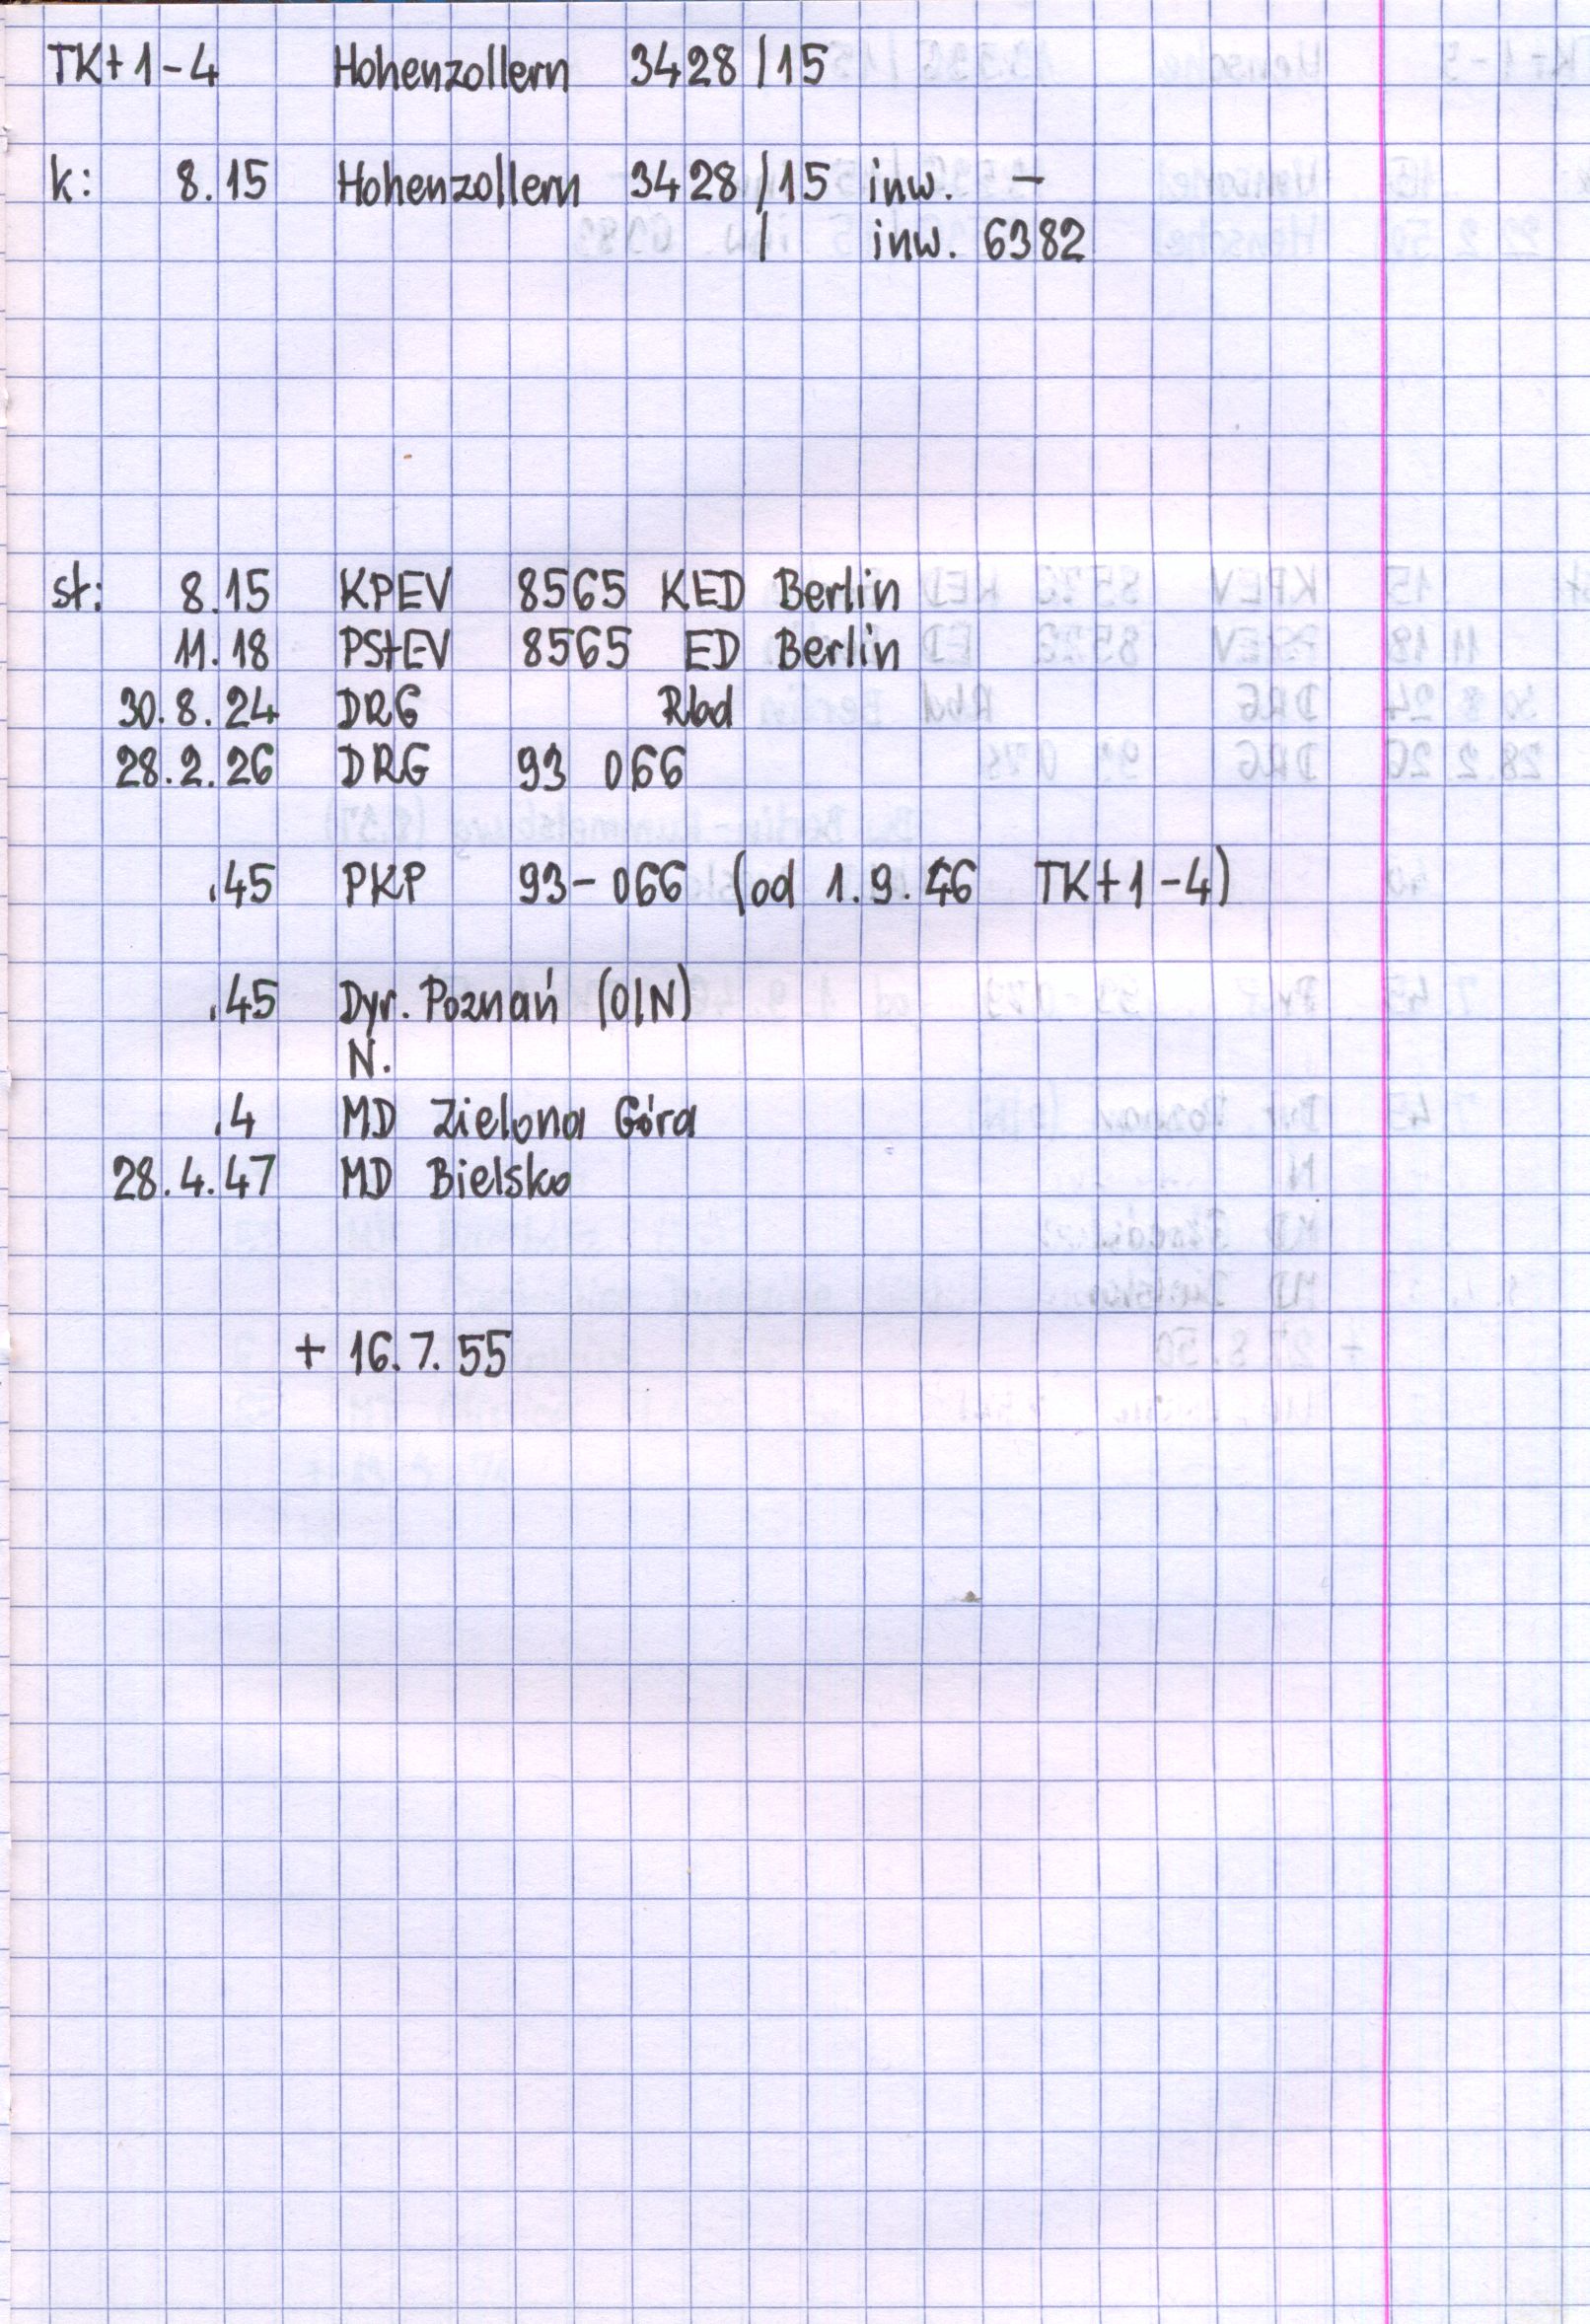 TKt1-4 Hohenzollern 3428/15
k: 8.15 Hohenzollern 3428/15 inw. -
/ inw. 6382
st: 8.15 KPEV 8565 KED Berlin
11.18 PStEV 8565 ED Berlin
30.8.24 DRG Rbd
28.2.26 DRG 93 066
.45 PKP 93-066 (od 1.9.46 TKt1-4)
.45 Dyr. Poznań (O/N)
N.
.4 MD Zielona Góra
28.4.47 MD Bielsko
+ 16.7.55